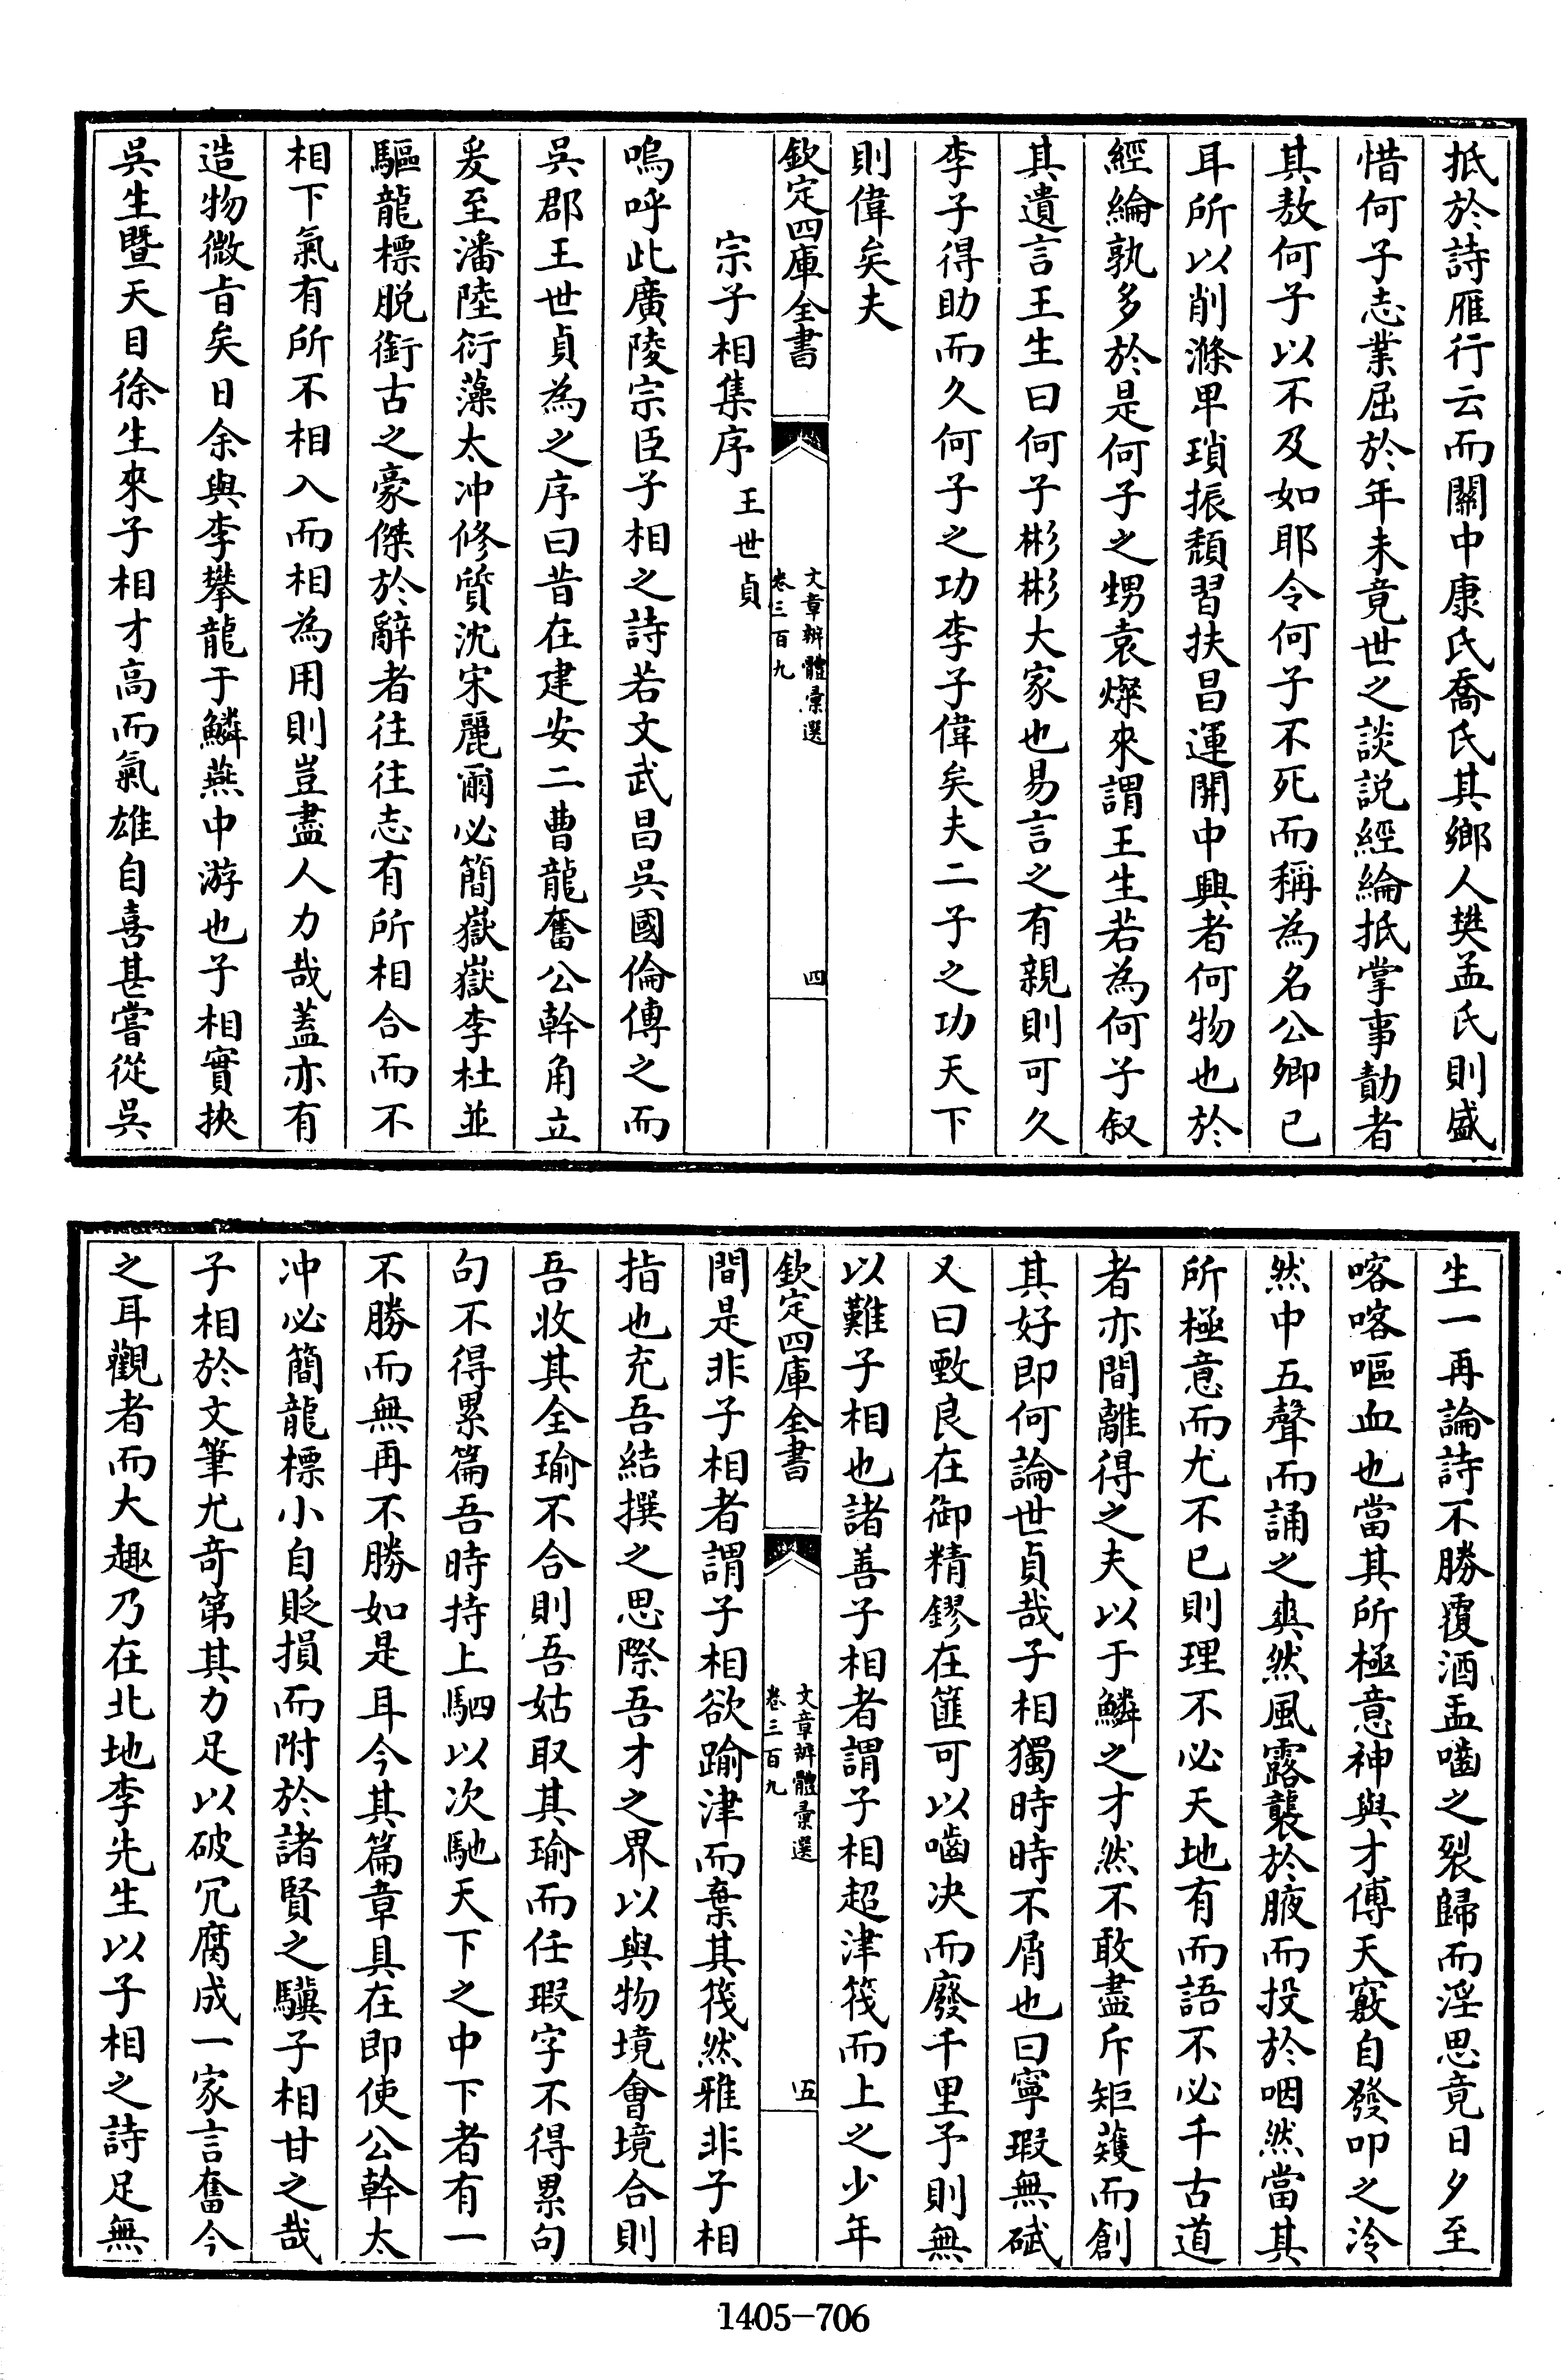 抵於詩雁行云而關中康氏喬氏其鄉人樊孟氏則盛
惜何子志業屈於年未竟世之談説經綸抵掌事勣者
其敖何子以不及如耶令何子不死而稱為名公卿已
耳所以削滌卑瑣振頽習扶昌運開中興者何物也於
經綸孰多於是何子之甥袁燦來謂王生若為何子叙
其遺言王生曰何子彬彬大家也易言之有親則可久
李子得助而久何子之功李子偉矣夫二子之功天下
則偉矣夫
欽定四庫全書
文章辨體彙選
卷三百九
四
宗子相集序 王世貞
嗚呼此廣陵宗臣子相之詩若文武昌吳國倫傳之而
吳郡王世貞為之序曰昔在建安二曹龍奮公幹角立
爰至潘陸衍藻太冲修質沈宋麗爾必簡嶽嶽李杜並
驅龍標脱銜古之豪傑於辭者往往志有所相合而不
相下氣有所不相入而相為用則豈盡人力哉蓋亦有
造物微旨矣日余與李攀龍于鱗燕中游也子相實挾
吳生暨天目徐生來子相才高而氣雄自喜甚嘗從吳
生一再論詩不勝覆酒盂嚙之裂歸而淫思竟日夕至
喀喀嘔血也當其所極意神與才傅天竅自發叩之泠
然中五聲而誦之爽然風露襲於腋而投於咽然當其
所極意而尤不已則理不必天地有而語不必千古道
者亦間離得之夫以于鱗之才然不敢盡斥矩矱而創
其好即何論世貞哉子相獨時時不屑也曰寧瑕無碔
又曰駁良在御精鏐在篚可以嚙决而廢千里予則無
以難子相也諸善子相者謂子相超津筏而上之少年
欽定四庫全書
文章辨體彙選
卷三百九
五
間是非子相者謂子相欲踰津而棄其筏然雅非子相
指也充吾結撰之思際吾才之界以與物境會境合則
吾收其全瑜不合則吾姑取其瑜而任瑕字不得累句
句不得累篇吾時持上駟以次馳天下之中下者有一
不勝而無再不勝如是耳今其篇章具在即使公幹太
冲必簡龍標小自貶損而附於諸賢之驥子相甘之哉
子相於文筆尤奇第其力足以破冗腐成一家言奮今
之耳觀者而大趣乃在北地李先生以子相之詩足無
1405-706